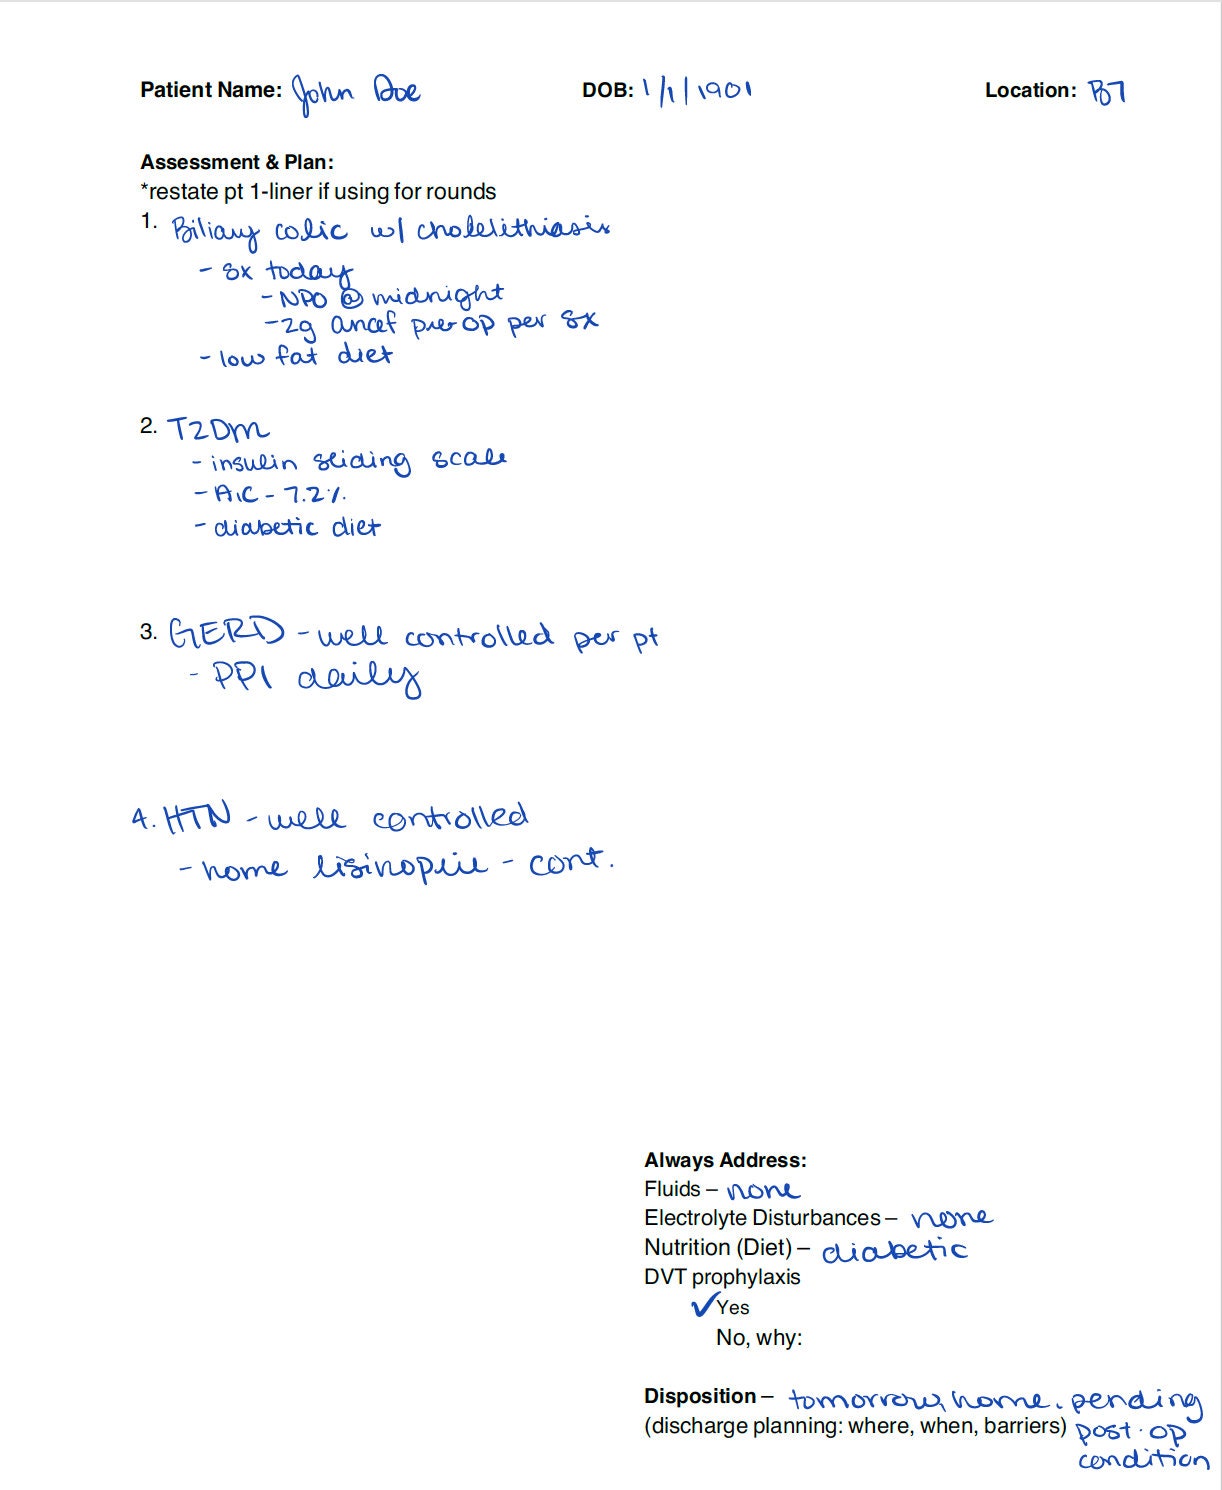 Patient Name: John Doe DOB: 1/1/1901 Location: B7
Assessment & Plan:
*restate pt 1-liner if using for rounds
1. Biliary colic w/ cholelithiasis
- sx today
- NPO @ midnight
- 2g ancef pre-op per sx
- low fat diet
2. T2DM
- insulin sliding scale
- A1C - 7.2%
- diabetic diet
3. GERD - well controlled per pt
- PPI daily
4. HTN - well controlled
- home lisinopril - cont.
Always Address:
Fluids – none
Electrolyte Disturbances – none
Nutrition (Diet) – diabetic
DVT prophylaxis
✓Yes
No, why:
Disposition – tomorrow, home. pending
(discharge planning: where, when, barriers) post-op
condition